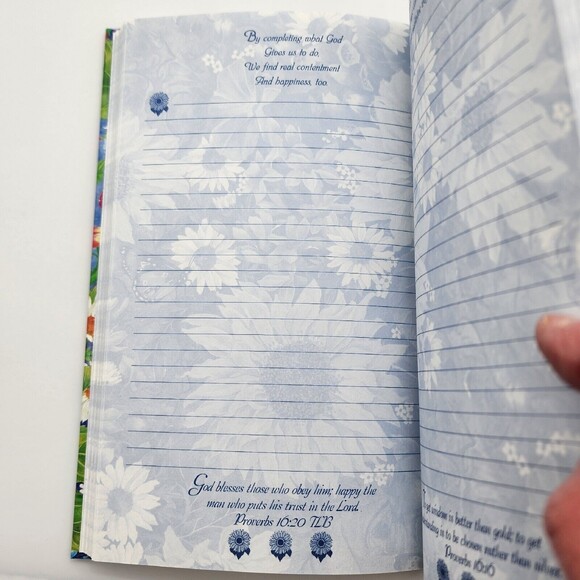 By completing what God
Gives us to do,
We find real contentment
And happiness, too.
God blesses those who obey him; happy the
man who puts his trust in the Lord.
Proverbs 16:20 TLB
get wisdom is better than gold; to get
is to be chosen rather than silver.
Proverbs 16:16